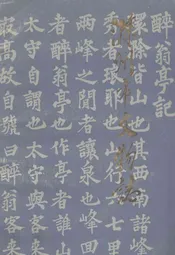 醉翁亭記
環滁皆山也其西南諸峰
秀者琅耶也山行六七里
兩峰之間者讓泉也峰回
者醉翁亭也作亭者誰山
太守自謂也太守與客來
最高故自號曰醉翁
文物志